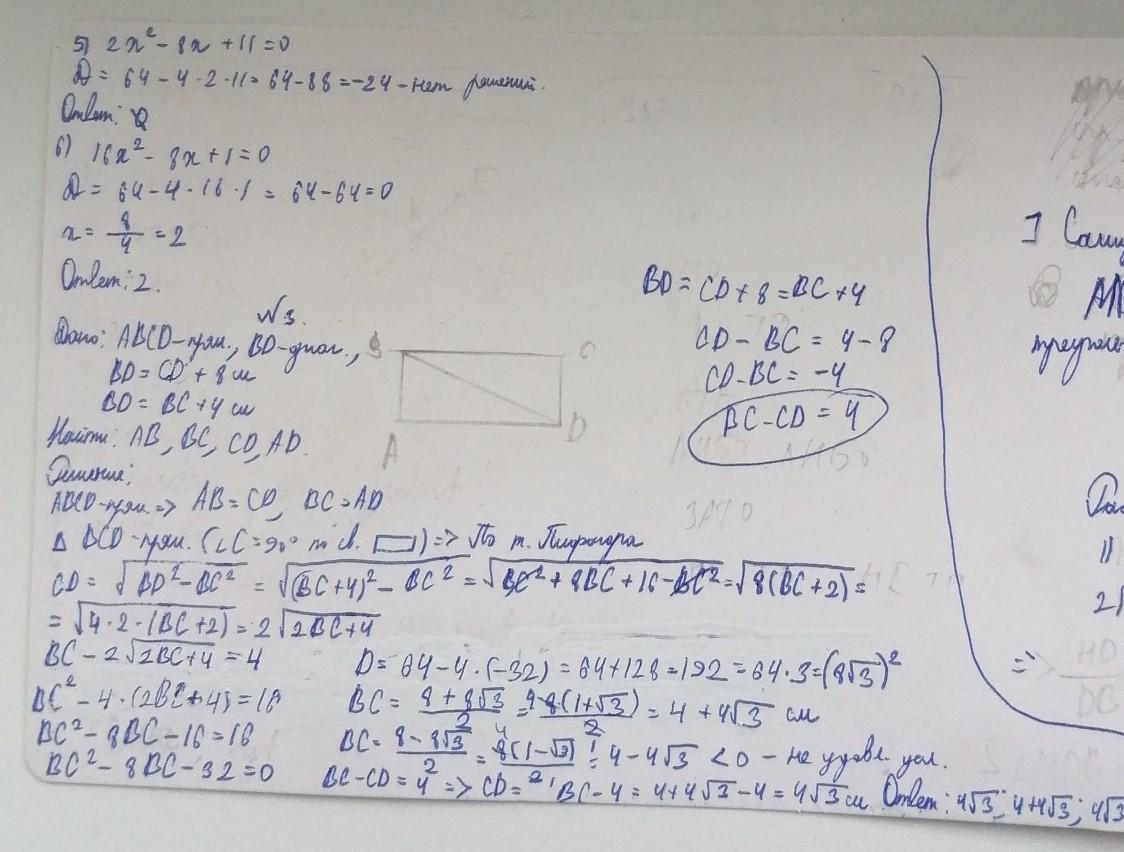 5) 2x² - 8x + 11 = 0
D = 64 - 4 · 2 · 11 = 64 - 88 = -24 - нет решений.
Ответ: Ø
6) 16x² - 8x + 1 = 0
D = 64 - 4 · 16 · 1 = 64 - 64 = 0
x = 8/4 = 2
Ответ: 2.
№3.
Дано: ABCD - прям., BD - диаг.,
BD = CD + 8 см
BD = BC + 4 см
Найти: AB, BC, CD, AD.
B C
A D
Решение:
ABCD - прям. => AB = CD, BC = AD
Δ BCD - прям. (∠C = 90° по св. ▭) => По т. Пифагора
CD = √(BD² - BC²) = √((BC+4)² - BC²) = √(BC² + 8BC + 16 - BC²) = √(8(BC+2)) =
= √(4 · 2 · (BC+2)) = 2√(2BC+4)
BC - 2√(2BC+4) = 4
BC² - 4 · (2BC+4) = 16
BC² - 8BC - 16 = 16
BC² - 8BC - 32 = 0
D = 64 - 4 · (-32) = 64 + 128 = 192 = 64 · 3 = (8√3)²
BC = (8 + 8√3)/2 = 8(1+√3)/2 = 4 + 4√3 см
BC = (8 - 8√3)/2 = 8(1-√3)/2 = 4 - 4√3 < 0 - не удовл. усл.
BC - CD = 4 => CD = BC - 4 = 4 + 4√3 - 4 = 4√3 см Ответ: 4√3; 4+4√3; 4√3
BD = CD + 8 = BC + 4
CD - BC = 4 - 8
CD - BC = -4
BC - CD = 4
=>